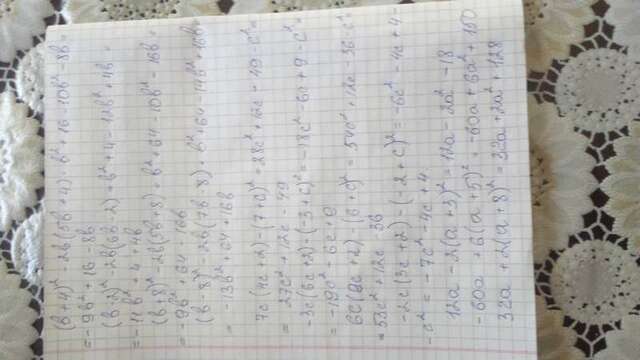 (b+4)² - 2b(5b+4) = b² + 16 - 10b² - 8b =
= -9b² + 16 - 8b
(b-2)² - 2b(6b-2) = b² + 4 - 12b² + 4b =
= -11b² + 4 + 4b
(b+8)² - 2b(5b+8) = b² + 64 - 10b² - 16b =
= -9b² + 64 - 16b
(b-8)² - 2b(7b-8) = b² + 64 - 14b² + 16b =
= -13b² + 64 + 16b
7c(4c+2) - (7+c)² = 28c² + 12c - 49 - c² =
= 27c² + 12c - 49
-3c(6c+2) - (-3+c)² = -18c² - 6c + 9 - c² =
= -19c² - 6c + 9
6c(9c+2) - (6+c)² = 54c² + 12c - 36 - c²
= 53c² + 12c - 36
-2c(3c+2) - (-2+c)² = -6c² - 4c + 4
-c² = -7c² - 4c + 4
12a - 2(a+3)² = 12a - 2a² - 18
-60a + 6(a+5)² = -60a + 6a² + 150
32a + 2(a+8)² = 32a + 2a² + 128